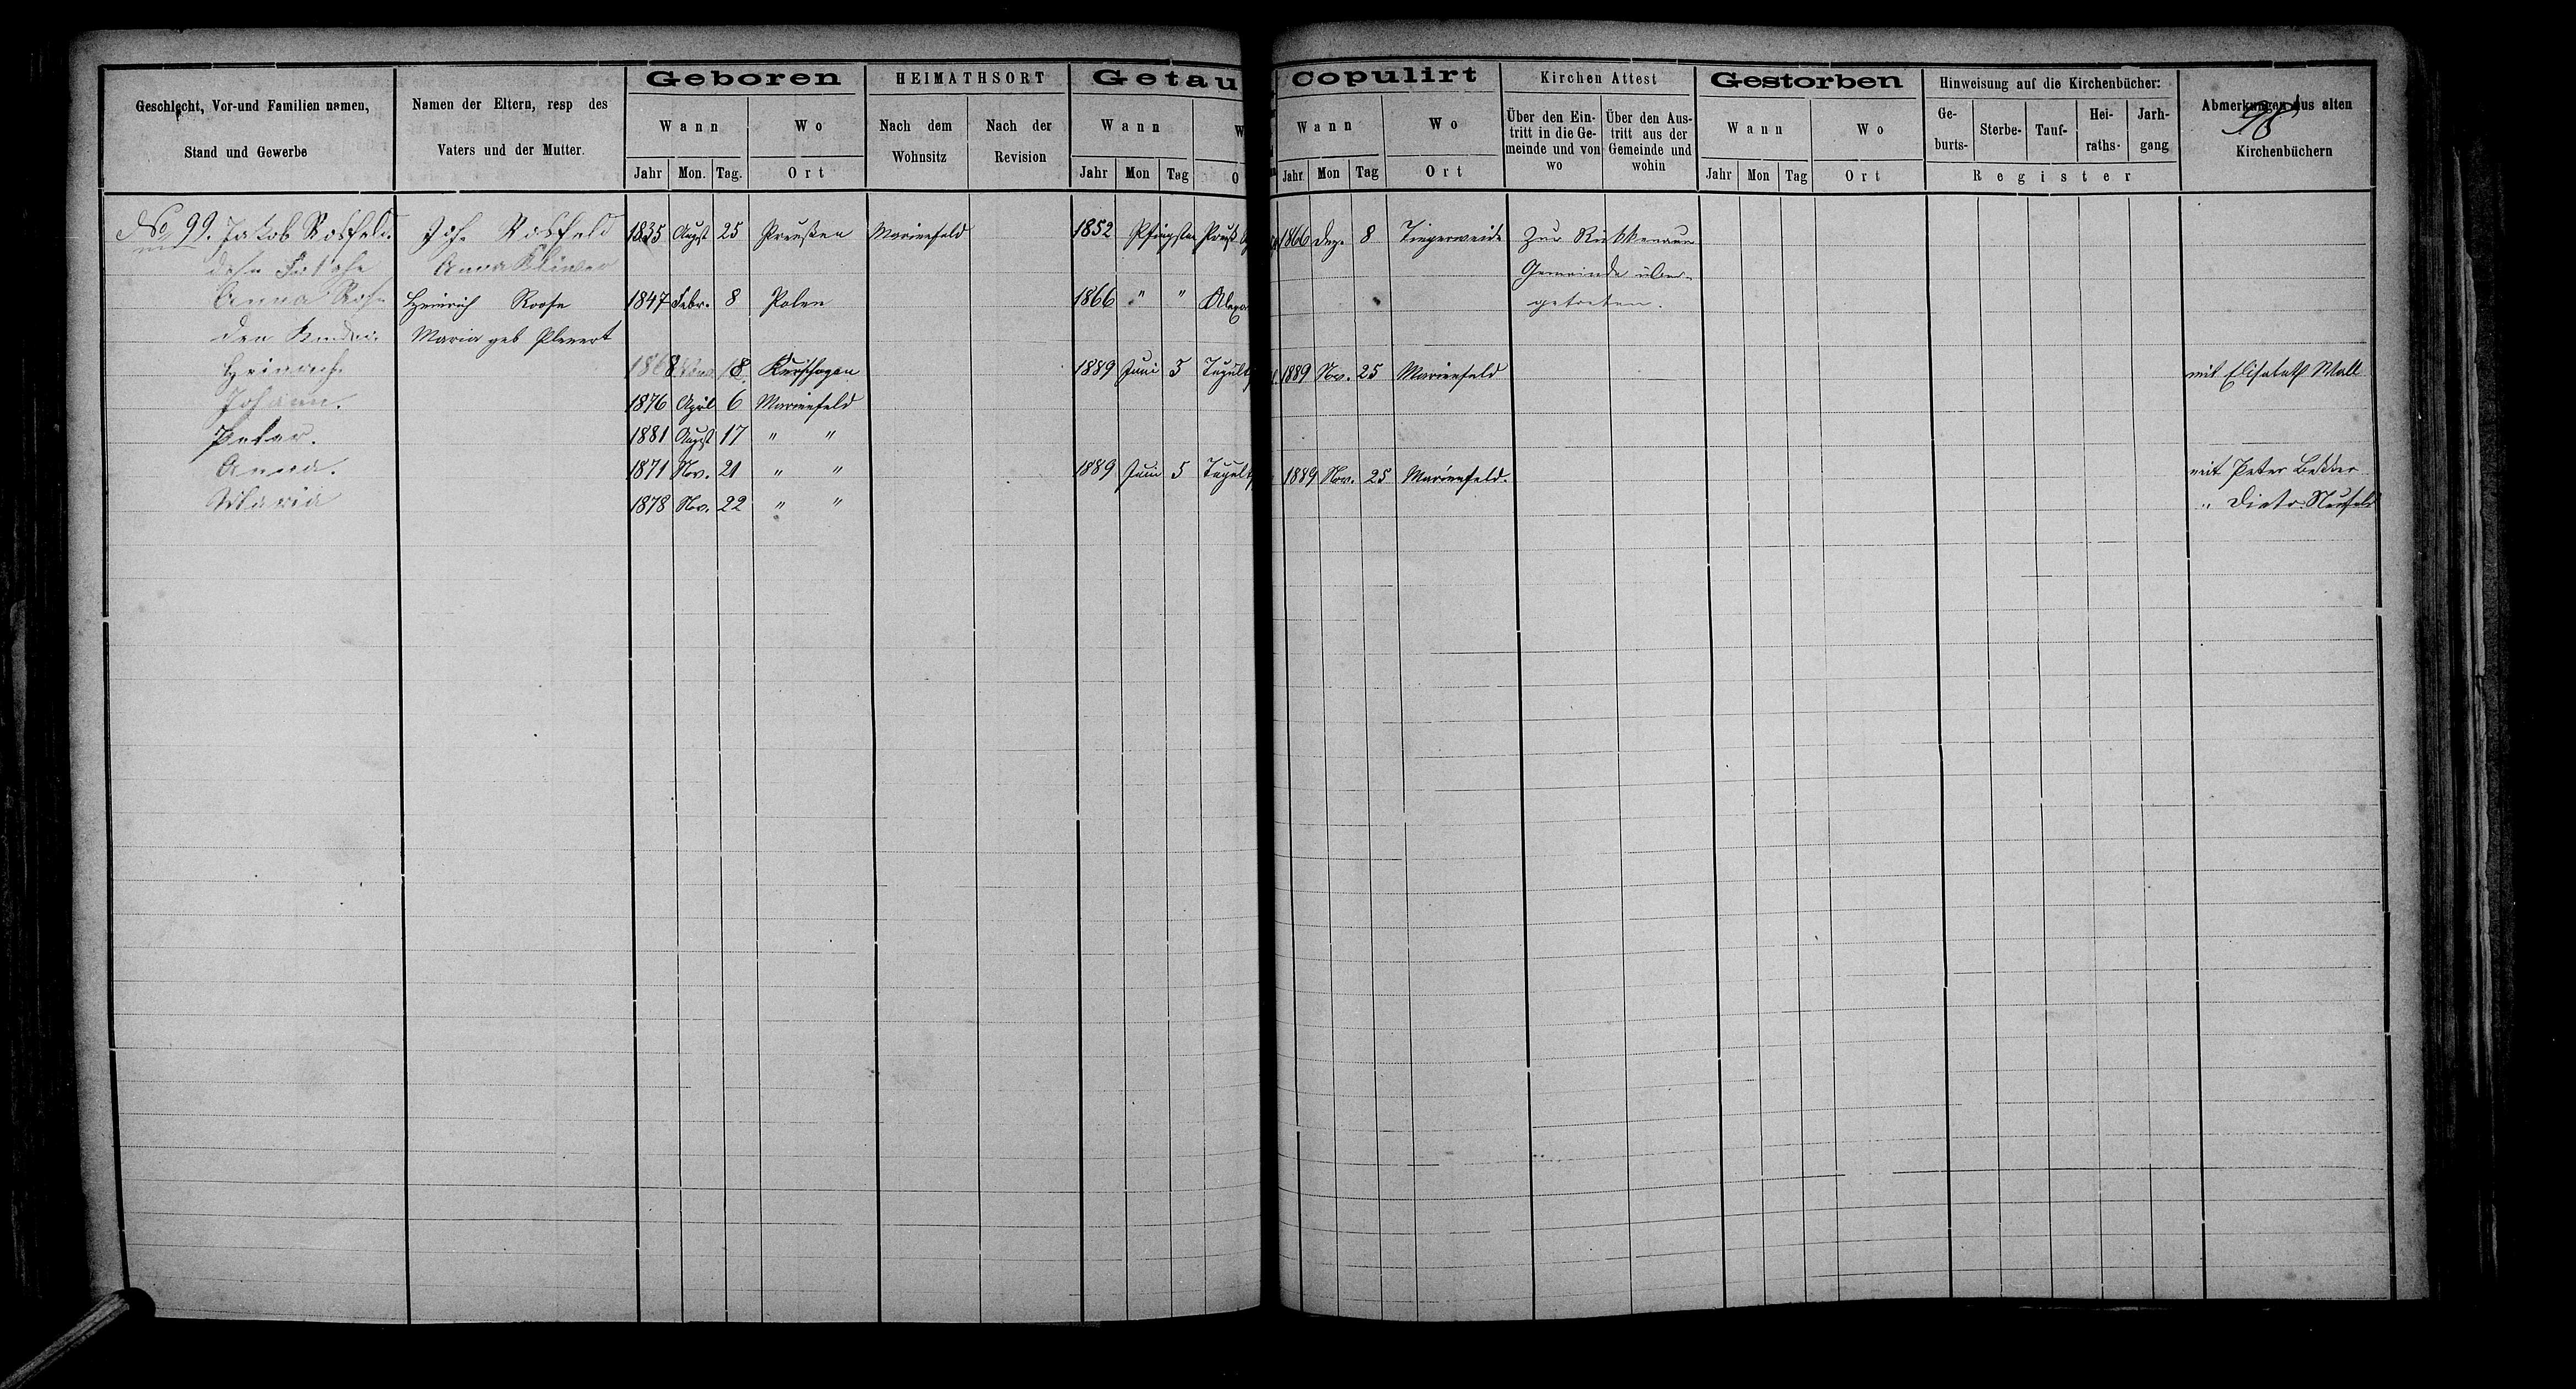 Geschlecht, Vor-und Familien namen,
Stand und Gewerbe
Namen der Eltern, resp des
Vaters und der Mutter.
Geboren
Wann
Wo
Jahr Mon. Tag. Ort
HEIMATHSORT
Nach dem
Wohnsitz
Nach der
Revision
Getau
Wann
W
Jahr Mon Tag O
Copulirt
Wann
Wo
Jahr Mon Tag Ort
Kirchen Attest
Über den Ein-
tritt in die Ge-
meinde und von
wo
Über den Aus-
tritt aus der
Gemeinde und
wohin
Gestorben
Wann
Wo
Jahr Mon Tag Ort
Hinweisung auf die Kirchenbücher:
Ge-
burts-
Sterbe-
Tauf-
Hei-
raths-
Jarh-
gang
Register
Abmerkungen aus alten
Kirchenbüchern
98
No 99. Jakob Rosfeld. Joh. Rosfeld 1835 Augst 25 Preußen Marienfeld 1852 Pfingsten Preuß 1866 Dez. 8 Tiegerweide Zur Rükkenauer
Anna Kliewer Gemeinde über-
Anna Heinrich Roose 1847 Febr. 8 Polen 1866 " " Alexa getreten.
den Kinder: Maria geb Plenert
Heinrich 1868 18 1889 Juni 5 1889 Nov. 25 Marienfeld mit Elisabeth Wall
Johann. 1876 April 6 Marienfeld
Peter. 1881 Augst 17 " "
Anna. 1871 Nov. 21 " " 1889 Juni 5 1889 Nov. 25 Marienfeld. mit Peter Bekker
Maria 1878 Nov. 22 " " " Dietr. Neufeld